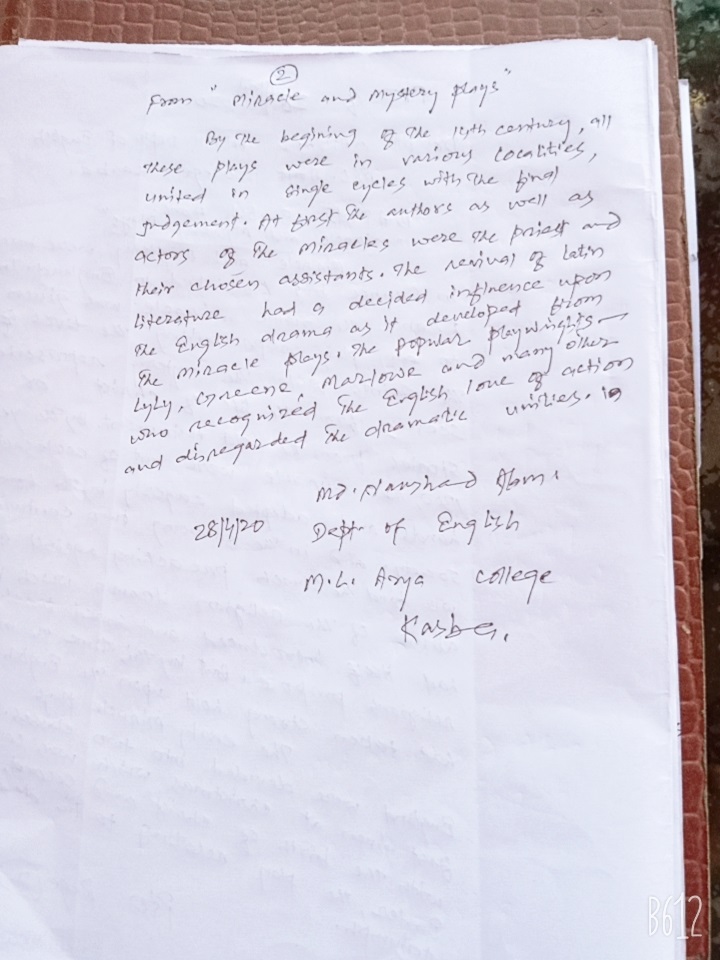 2
From "Miracle and Mystery Plays"
By The begining of The 14th century, all
These plays were in various localities,
united in single cycles with The final
judgement. At first The authors as well as
actors of The Miracles were The priest and
their chosen assistants. The revival of Latin
literature had a decided influence upon
The English drama as it developed from
The Miracle plays. The popular playwrights —
Lyly, Greene, Marlowe and many other
who recognized The English love of action
and disregarded The dramatic unities.
Md.
28/4/20 Dept. of English
M.L. Arya College
Kasba.
B612